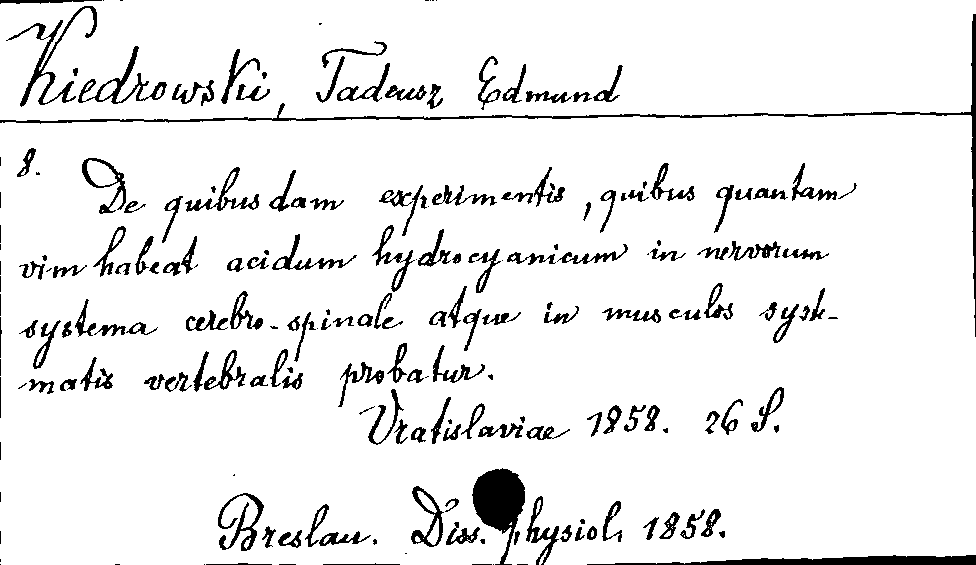 Kiedrowski, Tadeusz Edmund
8.
De quibusdam experimentis, quibus quantam
vim habeat acidum hydrocyanicum in nervorum
systema cerebro-spinale atque in musculos syste-
matis vertebralis probatur.
Vratislaviae 1858. 26 S.
Breslau. Diss. physiol. 1858.